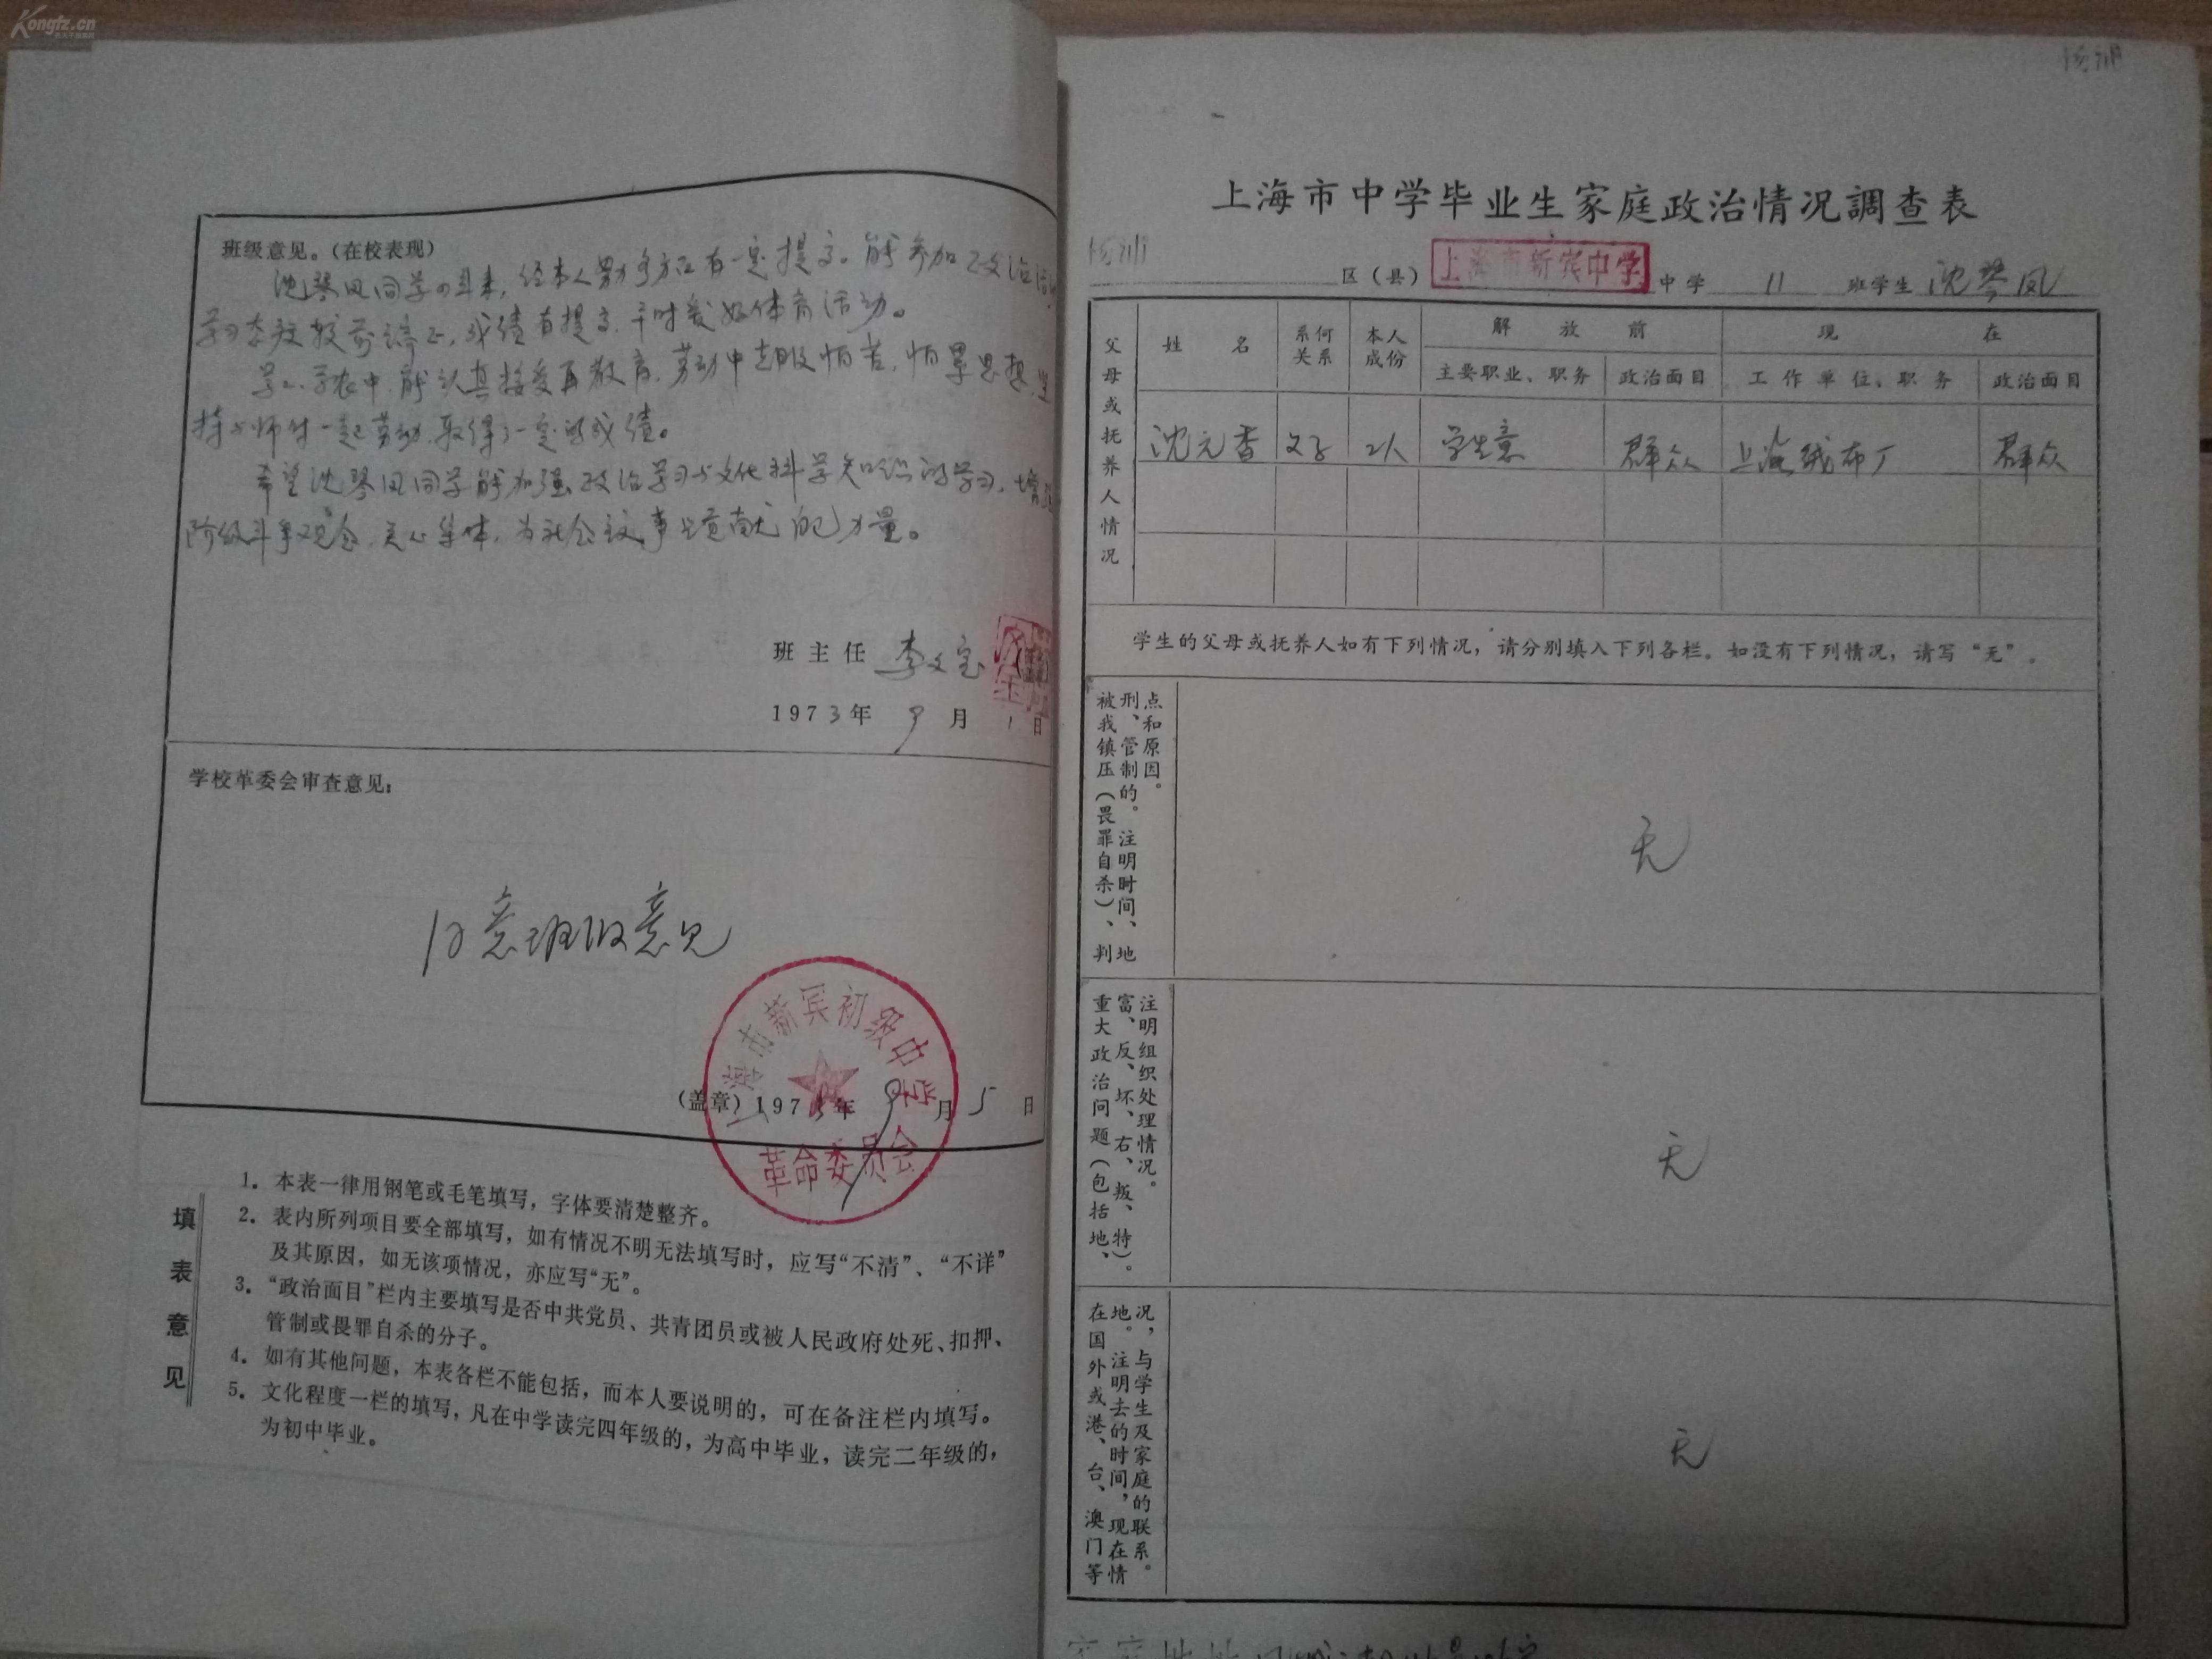 Kongfz.cn
班级意见。(在校表现)
沈琴凤同学四年来,经本人努力多方面有一定提高。能参加政治活
学习态度较前端正,成绩有提高,平时爱好体育活动。
学工、学农中,能认真接受再教育,劳动中克服怕苦,怕累思想,坚
持与师付一起劳动,取得了一定的成绩。
希望沈琴凤同学能加强政治学习与文化科学知识的学习,增强
阶级斗争观念,关心集体,为社会主义事业贡献自己力量。
班主任 李文宝
1973年 9月 1日
学校革委会审查意见:
同意班级意见
上海市新宾初级中学
革命委员会
(盖章)1973年 9月 5日
填表意见
1. 本表一律用钢笔或毛笔填写,字体要清楚整齐。
2. 表内所列项目要全部填写,如有情况不明无法填写时,应写“不清”、“不详”
及其原因,如无该项情况,亦应写“无”。
3. “政治面目”栏内主要填写是否中共党员、共青团员或被人民政府处死、扣押、
管制或畏罪自杀的分子。
4. 如有其他问题,本表各栏不能包括,而本人要说明的,可在备注栏内填写。
5. 文化程度一栏的填写,凡在中学读完四年级的,为高中毕业,读完二年级的,
为初中毕业。
杨浦
上海市中学毕业生家庭政治情况調查表
杨浦 区(县) 上海市新宾中学 中学 11 班学生 沈琴凤
父母或抚养人情况
姓名 系何关系 本人成份 解放前 现在
主要职业、职务 政治面目 工作单位、职务 政治面目
沈元香 父子 工人 学生意 群众 上海绒布厂 群众
学生的父母或抚养人如有下列情况,请分别填入下列各栏。如没有下列情况,请写“无”。
被我镇压(畏罪自杀)、判
刑、管制的。注明时间、地
点和原因。
无
重大政治问题(包括地、
富、反、坏、右、叛、特)。
注明组织处理情况。
无
在国外或港、台、澳门等
地。注明去的时间,现在情
况,与学生及家庭的联系。
无